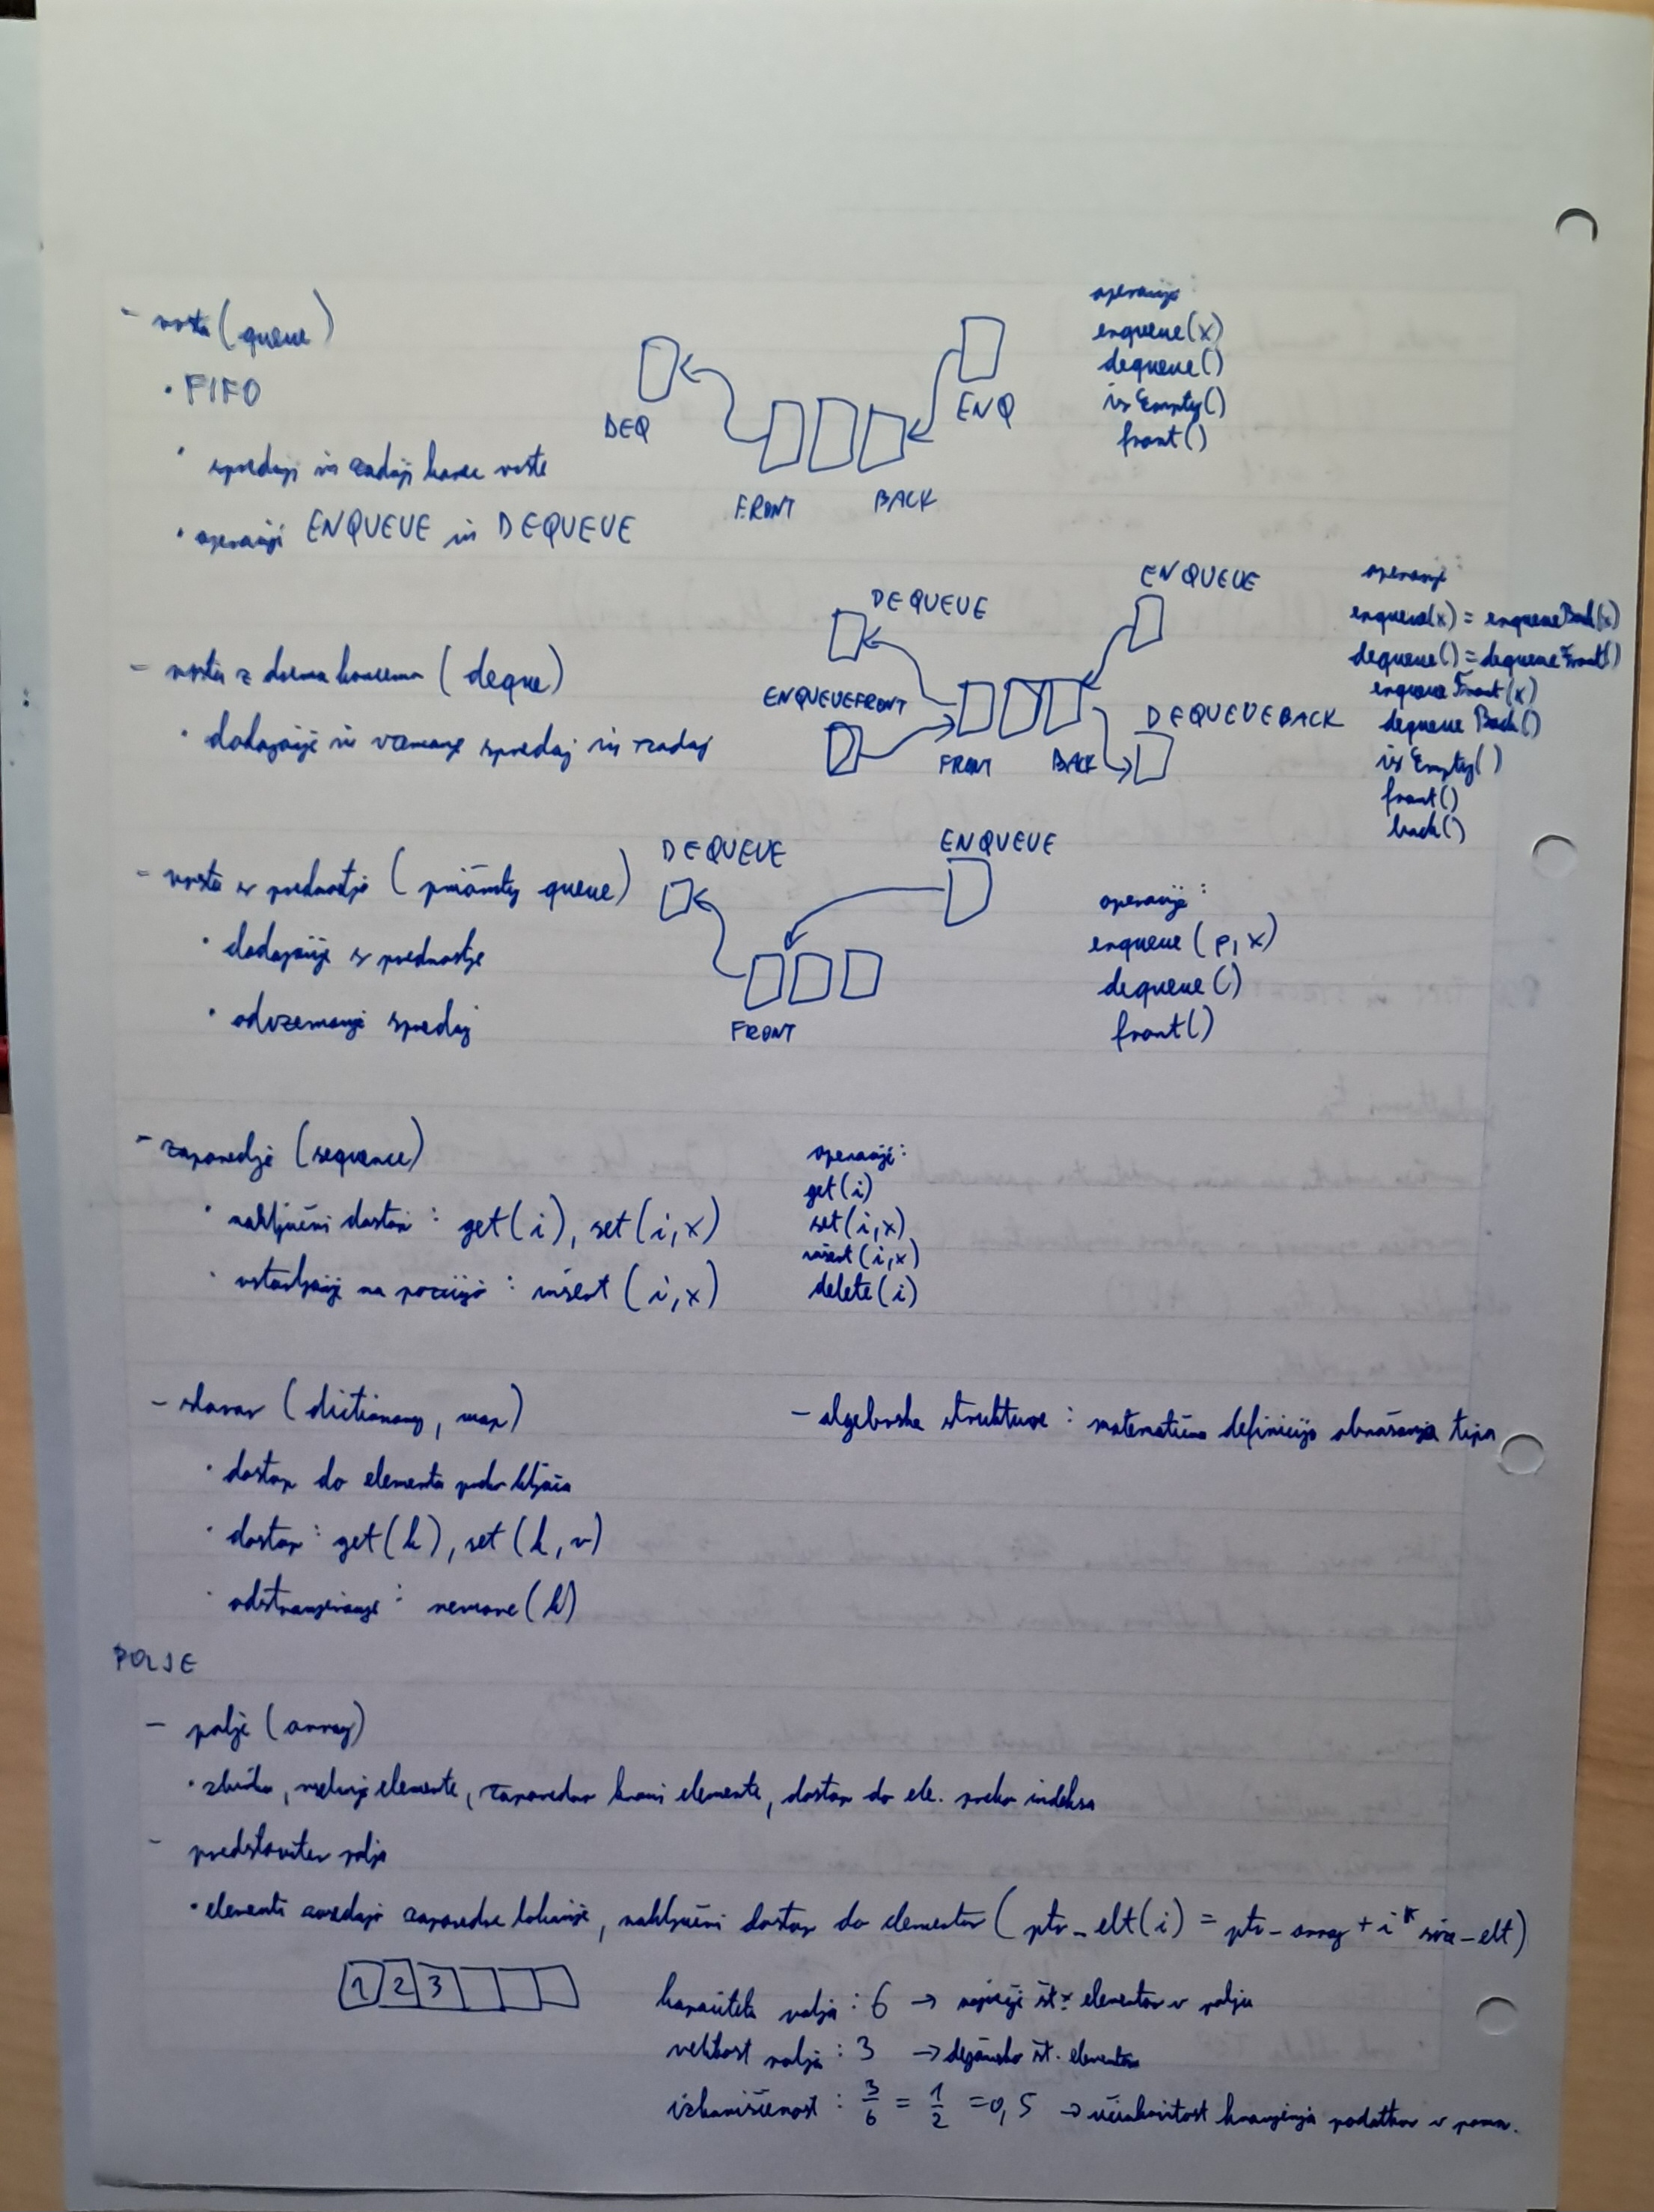 - vrsta (queue)
• FIFO
• sprednji in zadnji konec vrste
• operaciji ENQUEUE in DEQUEUE
DEQ
FRONT
BACK
ENQ
operacije:
enqueue(x)
dequeue()
isEmpty()
front()
- vrsta z dvema koncema (deque)
• dodajanje in vzemanje spredaj in zadaj
DEQUEUE
ENQUEUE
ENQUEUEFRONT
DEQUEUEBACK
FRONT
BACK
operacije:
enqueue(x) = enqueueBack(x)
dequeue() = dequeueFront()
enqueueFront(x)
dequeueBack()
isEmpty()
front()
back()
- vrsta s prednostjo (priority queue)
• dodajanje s prednostjo
• odvzemanje spredaj
DEQUEUE
ENQUEUE
FRONT
operacije:
enqueue(p, x)
dequeue()
front()
- zaporedje (sequence)
• naključni dostop : get(i), set(i,x)
• vstavljanje na pozicijo : insert(i,x)
operacije:
get(i)
set(i,x)
insert(i,x)
delete(i)
- slovar (dictionary, map)
• dostop do elementa preko ključa
• dostop : get(k), set(k,v)
• odstranjevanje : remove(k)
- algebrska struktura : matematična definicija obnašanja tipa
POLJE
- polje (array)
• zbirka, vsebuje elemente, zaporedno hrani elemente, dostop do ele. preko indeksa
- predstavitev polja
• elementi zasedajo zaporedne lokacije, naključni dostop do elementov (ptr_elt(i) = ptr_array + i * size_elt)
1 2 3
kapaciteta polja : 6 → največje št. elementov v polju
velikost polja : 3 → dejansko št. elementov
izkoriščenost : 3/6 = 1/2 = 0,5 → učinkovitost hranjenja podatkov v pomn.